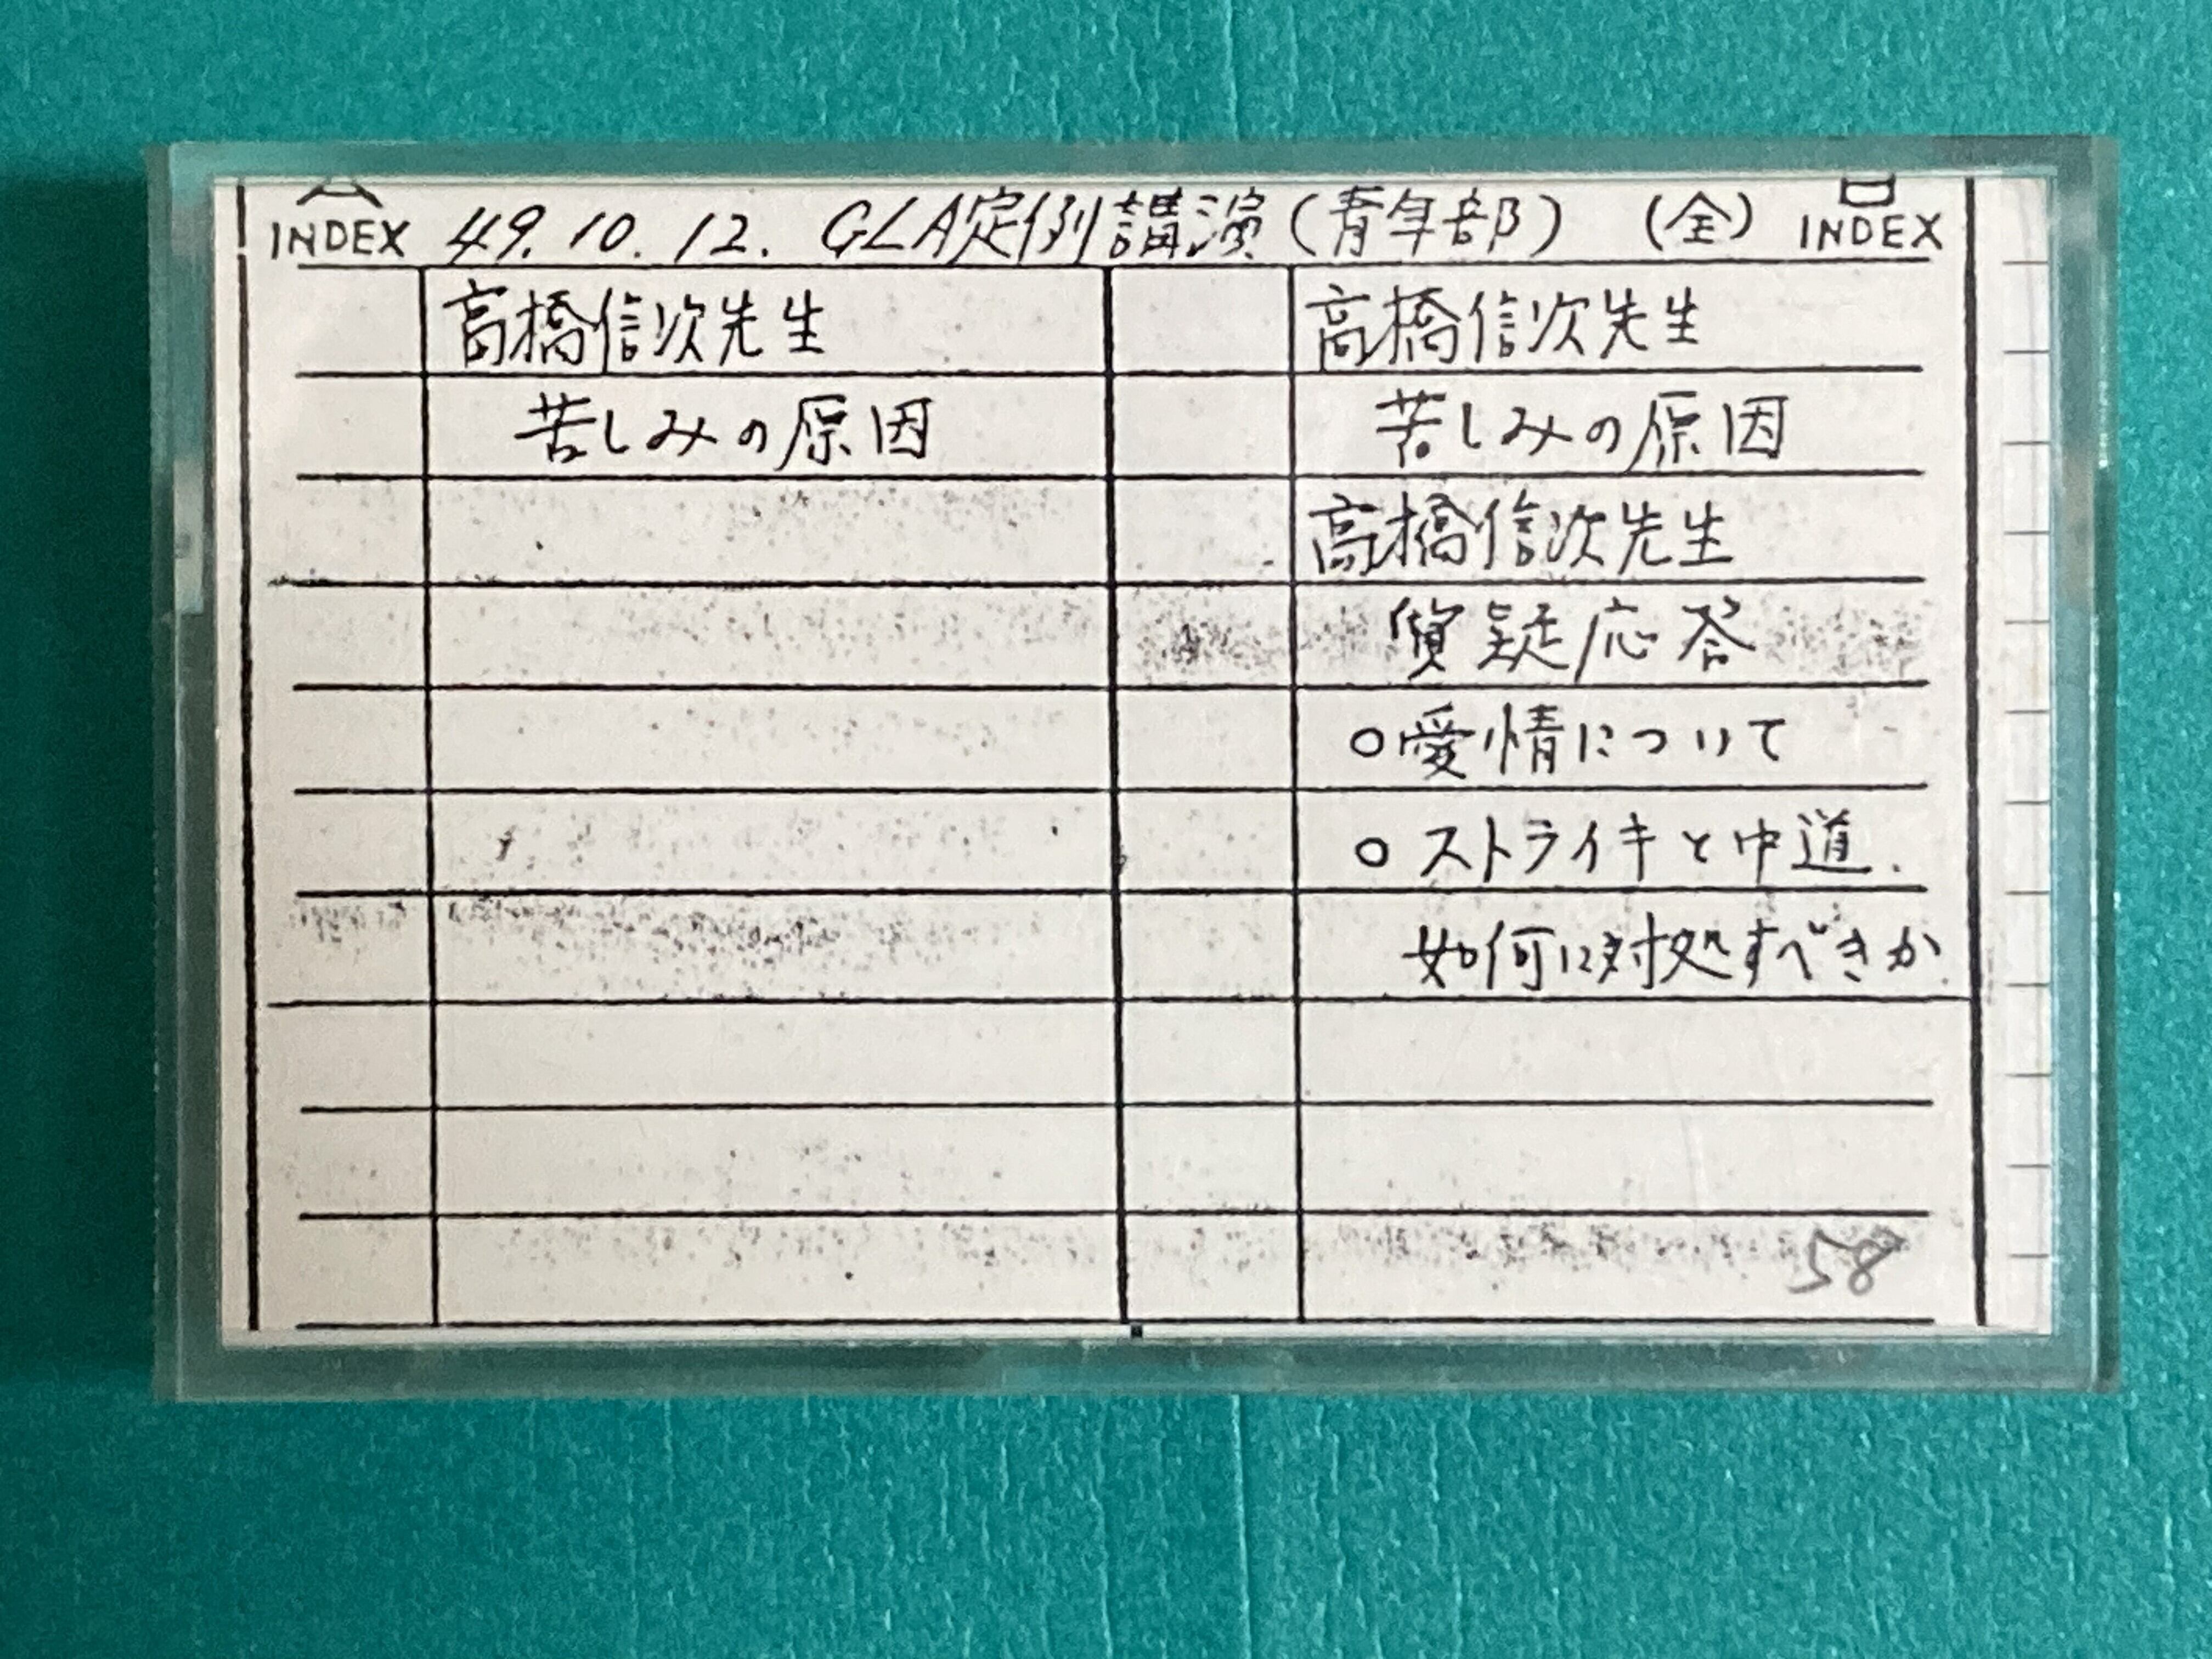 A INDEX 49.10.12. GLA定例講演(青年部) (全) B INDEX
高橋信次先生
苦しみの原因
高橋信次先生
苦しみの原因
高橋信次先生
質疑応答
○愛情について
○ストライキと中道.
如何に対処すべきか
58